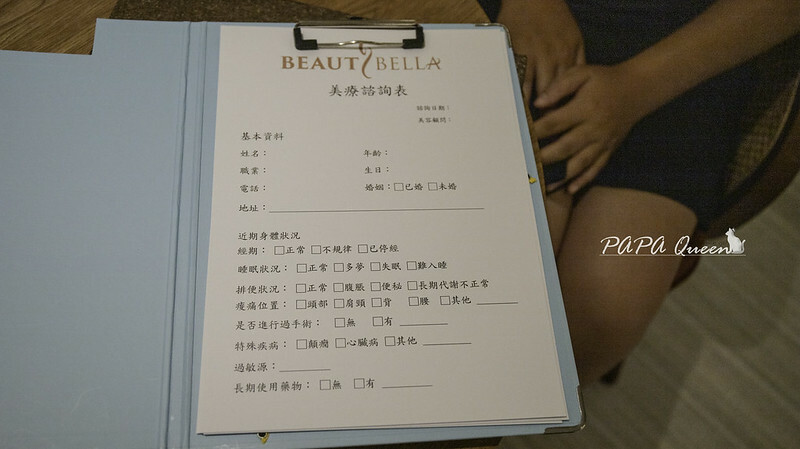 BEAUTYBELLA
美療諮詢表
諮詢日期：
美容顧問：
基本資料
姓名： 年齡：
職業： 生日：
電話： 婚姻：□已婚 □未婚
地址：
近期身體狀況
經期：□正常 □不規律 □已停經
睡眠狀況：□正常 □多夢 □失眠 □難入睡
排便狀況：□正常 □腹脹 □便秘 □長期代謝不正常
痠痛位置：□頭部 □肩頸 □背 □腰 □其他
是否進行過手術：□無 □有
特殊疾病：□顛癇 □心臟病 □其他
過敏源：
長期使用藥物：□無 □有
PAPA Queen